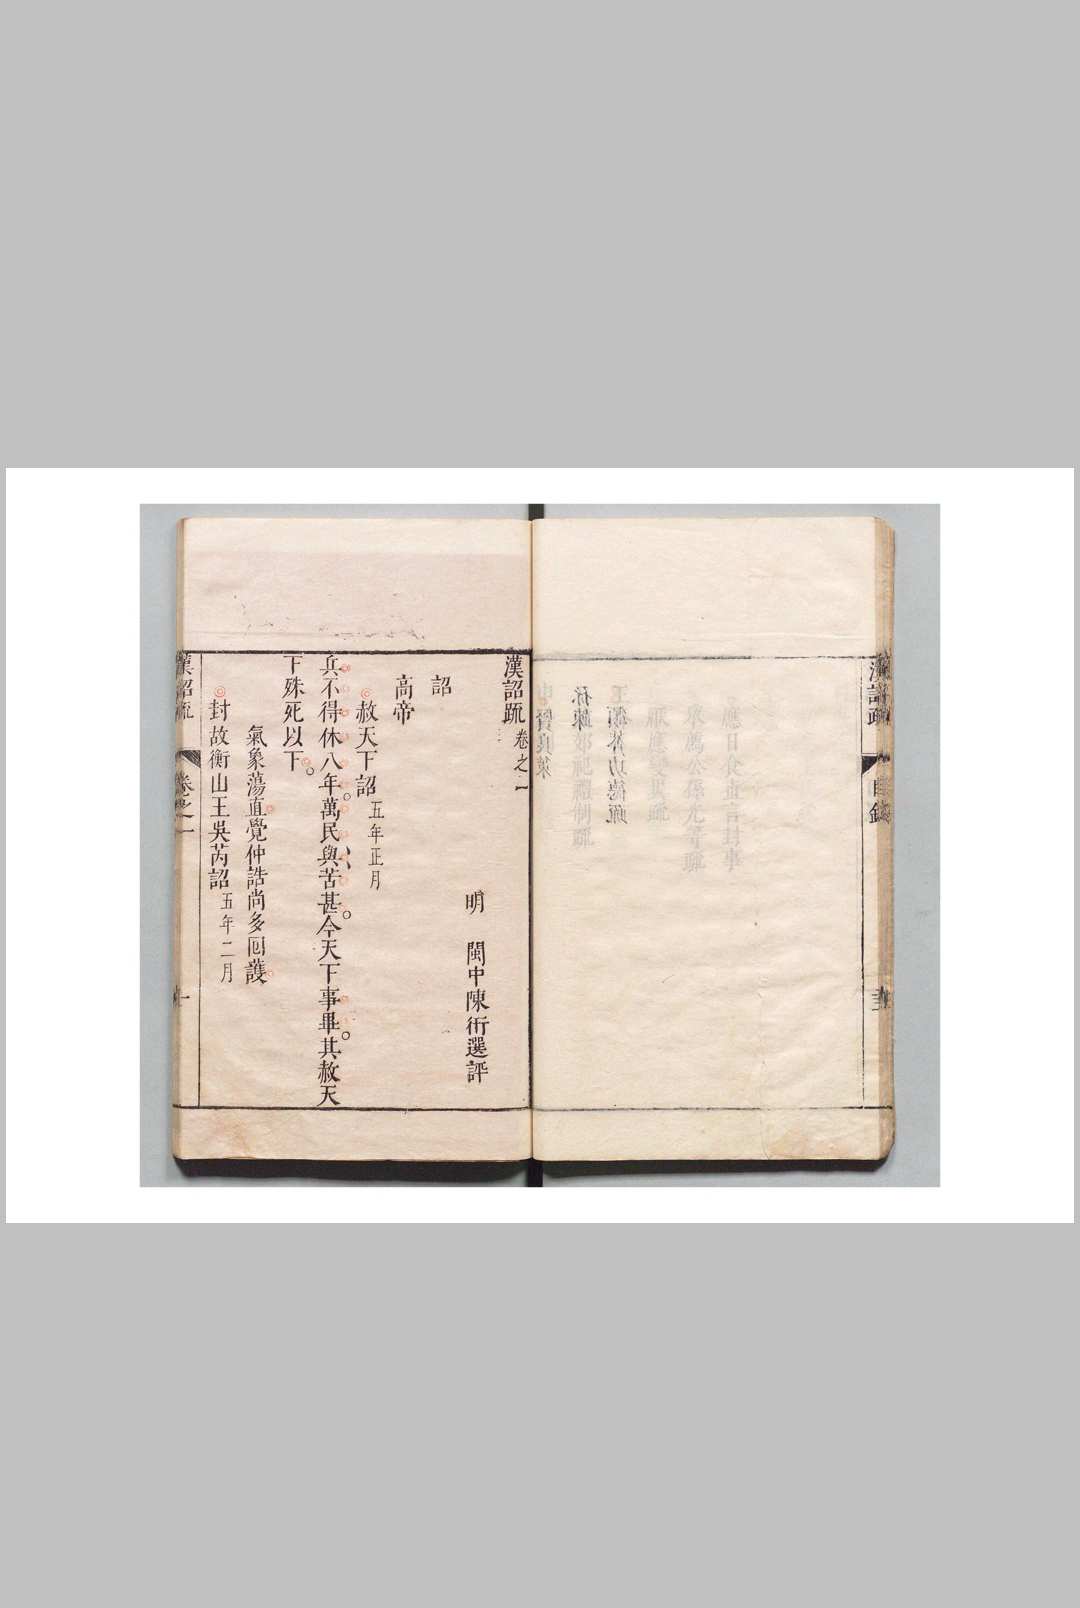 漢詔疏 目錄
漢詔疏卷之一
明 閩中陳衎選評
詔
高帝
赦天下詔五年正月
兵不得休八年萬民與苦甚今天下事畢其赦天
下殊死以下
氣象蕩直覺仲誥尚多回護
封故衡山王吳芮詔五年二月
漢詔疏 卷之一 一